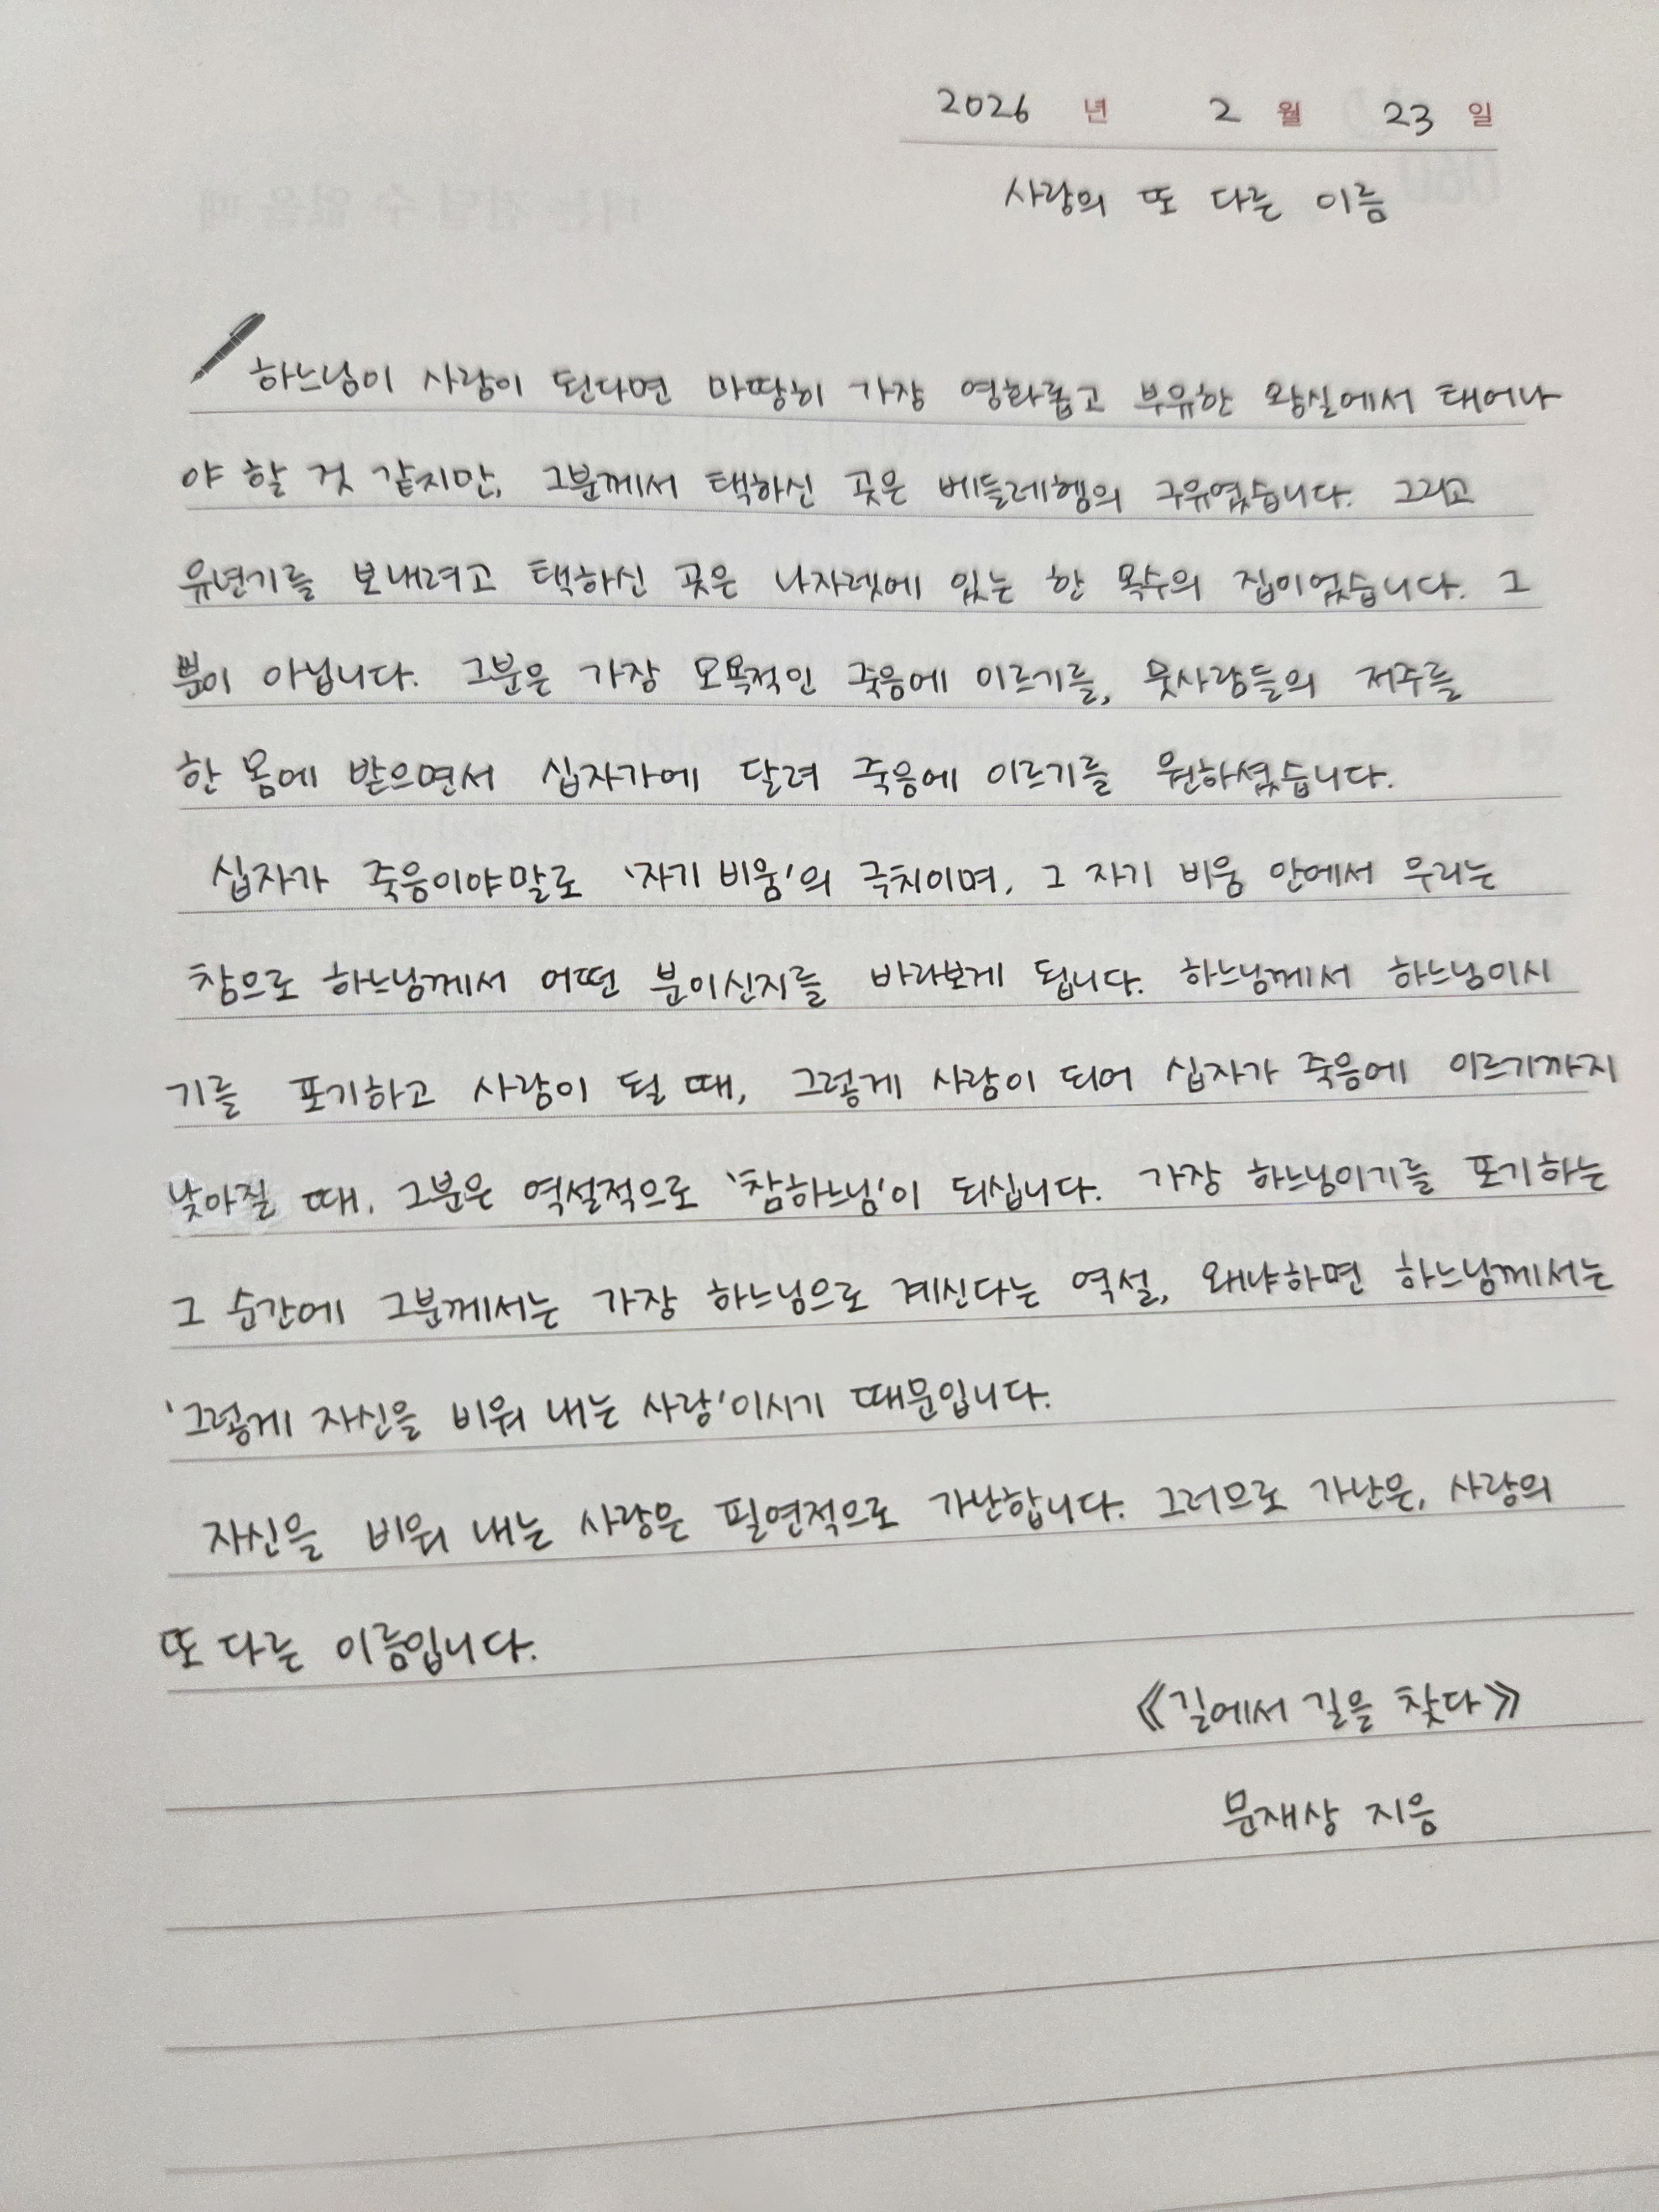 2026 년 2 월 23 일
사랑의 또 다른 이름
하느님이 사랑이 된다면 마땅히 가장 영화롭고 부유한 왕실에서 태어나
야 할 것 같지만, 그분께서 택하신 곳은 베들레헴의 구유였습니다. 그리고
유년기를 보내려고 택하신 곳은 나자렛에 있는 한 목수의 집이었습니다. 그
뿐이 아닙니다. 그분은 가장 모욕적인 죽음에 이르기를, 뭇사람들의 저주를
한 몸에 받으면서 십자가에 달려 죽음에 이르기를 원하셨습니다.
십자가 죽음이야말로 '자기 비움'의 극치이며, 그 자기 비움 안에서 우리는
참으로 하느님께서 어떤 분이신지를 바라보게 됩니다. 하느님께서 하느님이시
기를 포기하고 사랑이 될 때, 그렇게 사랑이 되어 십자가 죽음에 이르기까지
낮아질 때, 그분은 역설적으로 '참하느님'이 되십니다. 가장 하느님이기를 포기하는
그 순간에 그분께서는 가장 하느님으로 계신다는 역설, 왜냐하면 하느님께서는
'그렇게 자신을 비워 내는 사랑'이시기 때문입니다.
자신을 비워 내는 사랑은 필연적으로 가난합니다. 그러므로 가난은, 사랑의
또 다른 이름입니다.
《길에서 길을 찾다》
문재상 지음